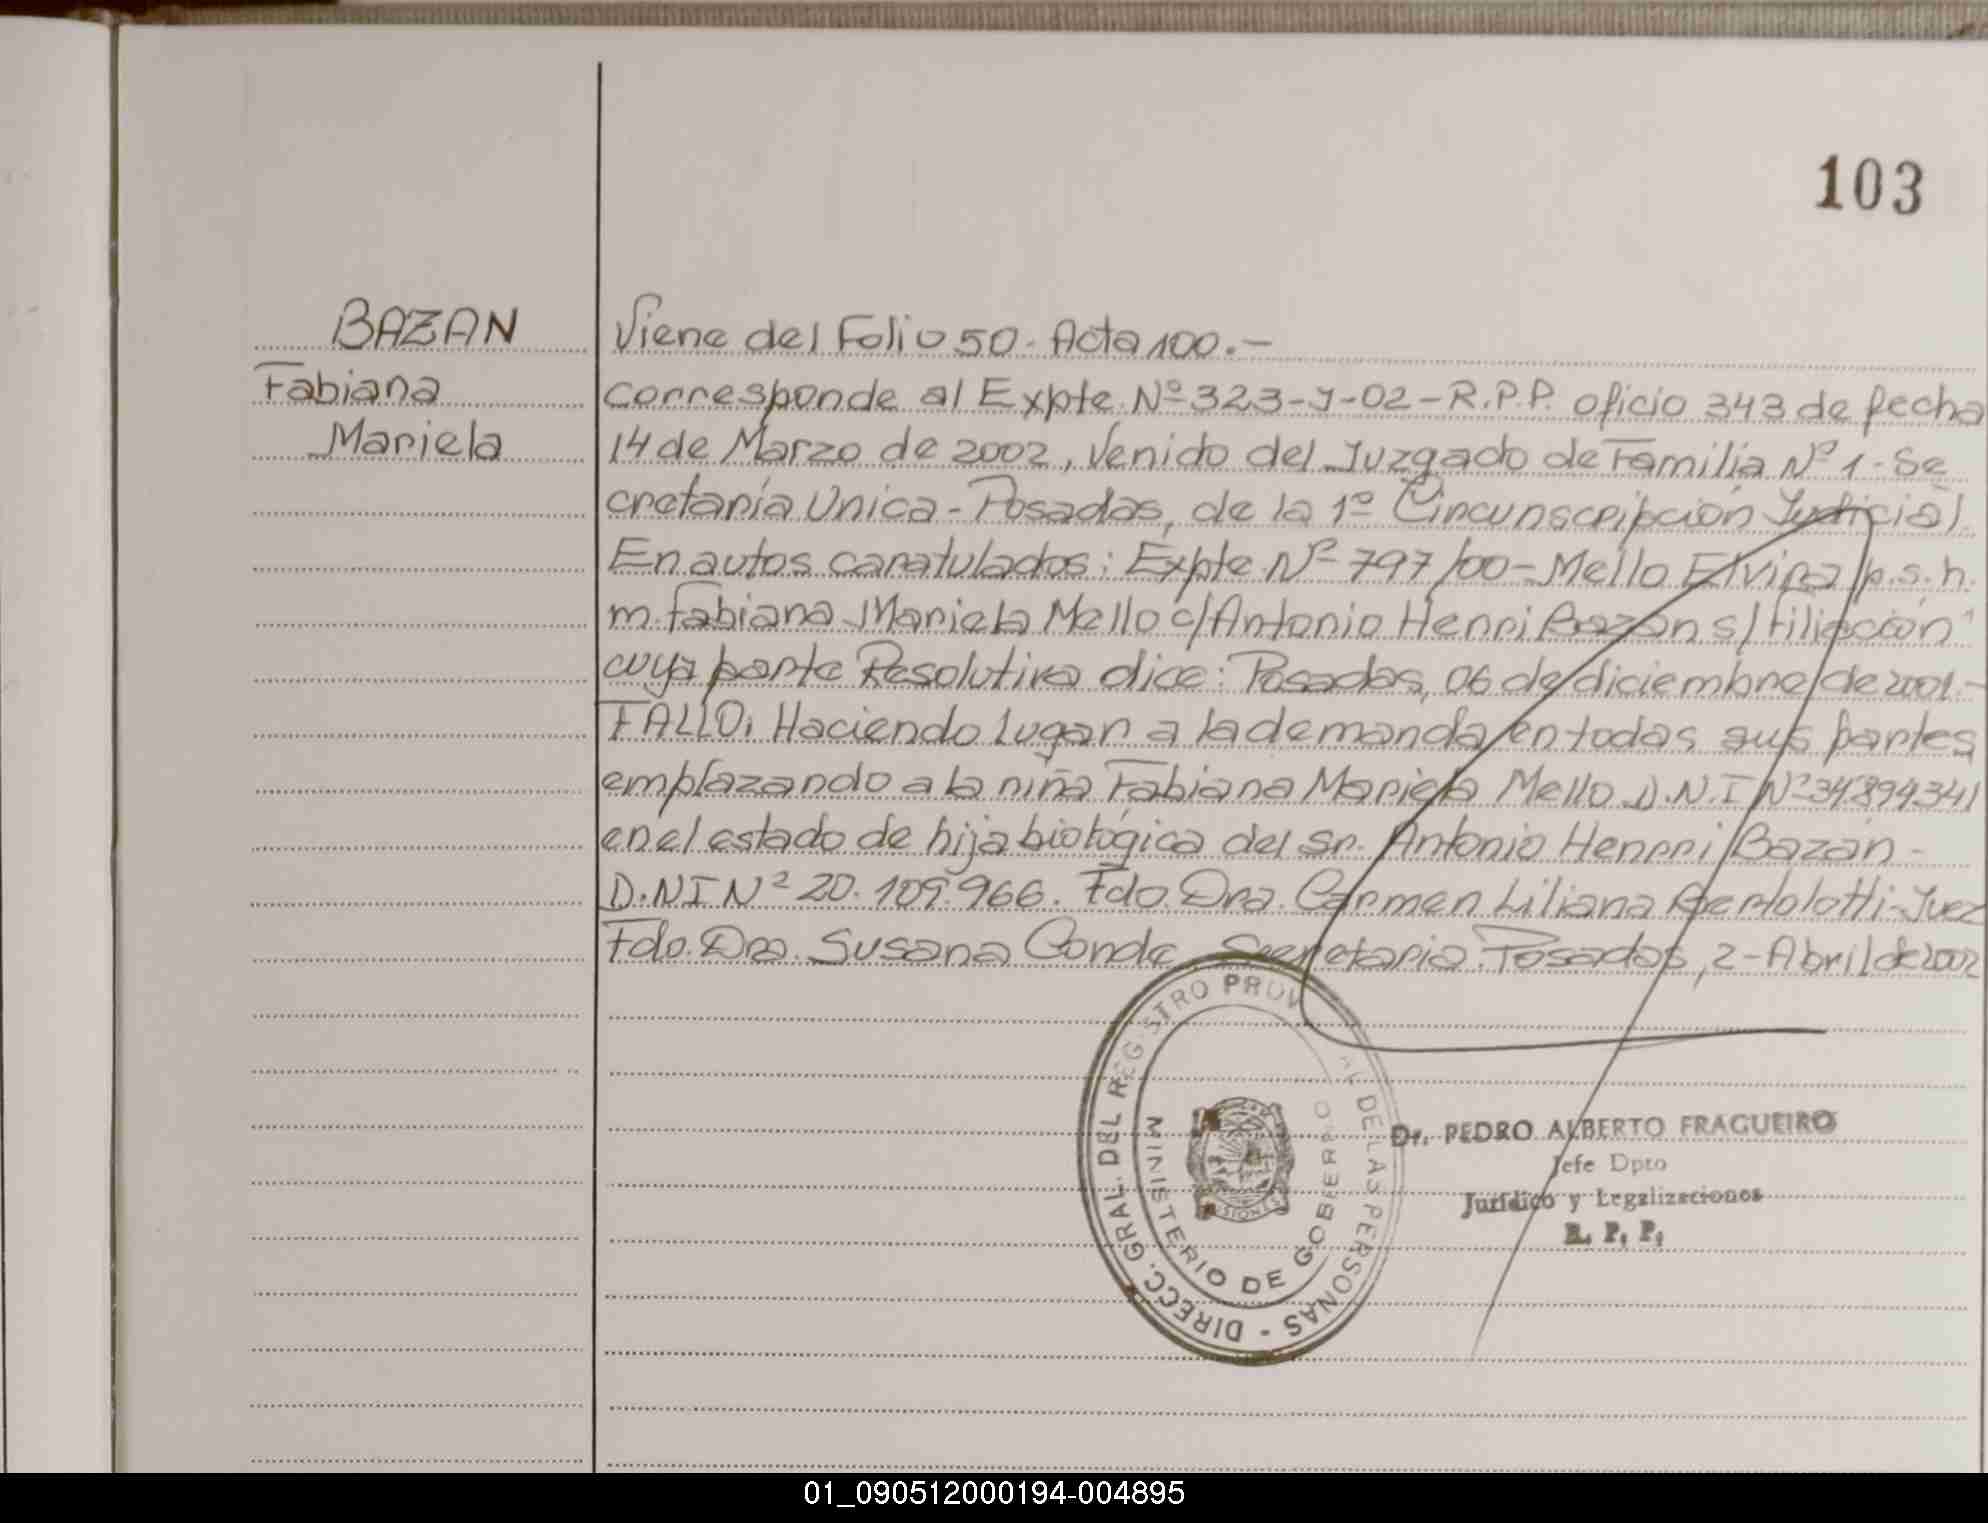 103
BAZAN
Fabiana
Mariela
Viene del Folio 50. Acta 100.-
Corresponde al Expte Nº 323-J-02-R.P.P. oficio 343 de fecha
14 de Marzo de 2002, Venido del Juzgado de Familia Nº 1- Se
cretaría Unica - Posadas, de la 1º Circunscripción Judicial.
En autos caratulados: Expte Nº 797/00 - Mello Elvira p.s.h.
m. Fabiana Mariela Mello c/Antonio Henri Bazán s/Filiación"
cuya parte Resolutiva dice: Posadas, 06 de diciembre de 2001.-
FALLO: Haciendo Lugar a la demanda en todas sus partes
emplazando a la niña Fabiana Mariela Mello D.N.I Nº 34894341
en el estado de hija biológica del Sr. Antonio Henrri Bazán -
D.NI Nº 20.109.966. Fdo. Dra. Carmen Liliana Bertolotti-Juez
Fdo. Dra. Susana Conde. Secretaria. Posadas, 2-Abril de 2002
DIRECC. GRAL. DEL REGISTRO PROV AL DE LAS PERSONAS -
MINISTERIO DE GOBIERNO
MISIONES
Dr. PEDRO ALBERTO FRAGUEIRO
Jefe Dpto
Jurídico y Legalizaciones
R. P. P.
01_090512000194-004895